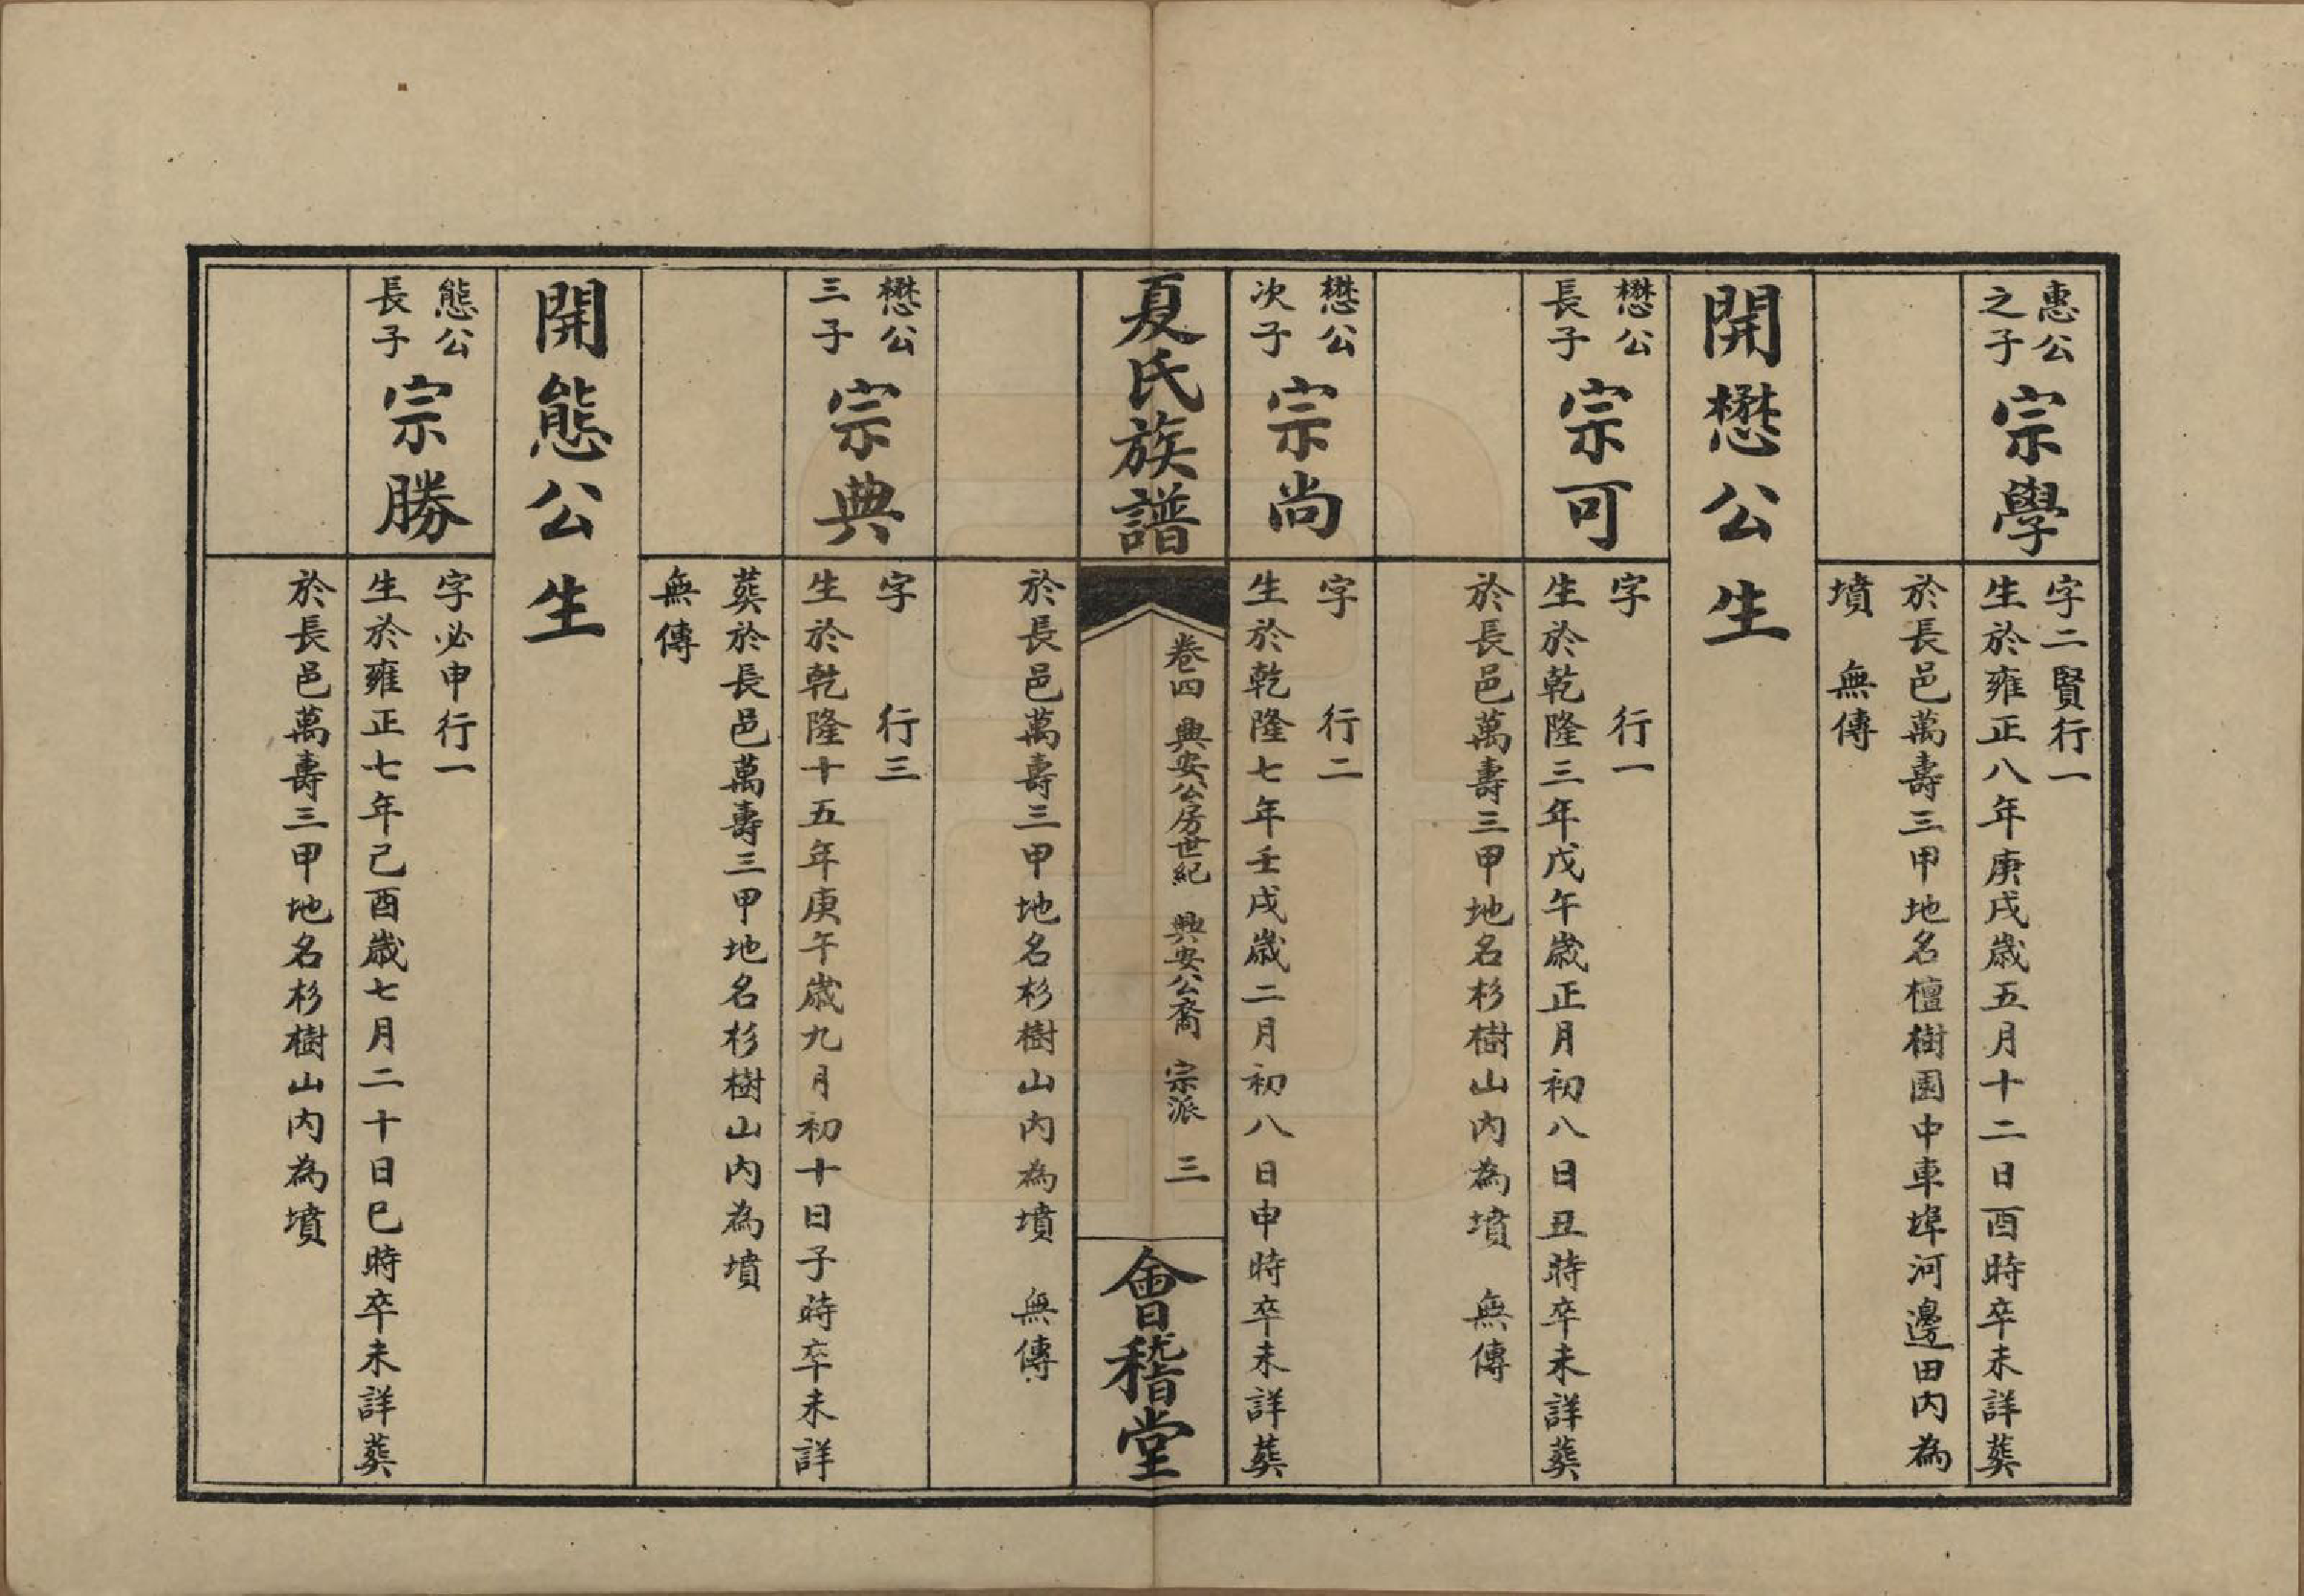 惠公
之子
宗學
字二賢行一
生於雍正八年庚戌歲五月十二日酉時卒未詳葬
於長邑萬壽三甲地名檀樹園中車埠河邊田内為
墳　無傳
開懋公生
懋公
長子
宗可
字　行一
生於乾隆三年戊午歲正月初八日丑時卒未詳葬
於長邑萬壽三甲地名杉樹山内為墳　無傳
懋公
次子
宗尚
字　行二
生於乾隆七年壬戌歲二月初八日申時卒未詳葬
夏氏族譜
卷四　興安公房世紀　興安公裔　宗派　三
會稽堂
於長邑萬壽三甲地名杉樹山内為墳　無傳
懋公
三子
宗典
字　行三
生於乾隆十五年庚午歲九月初十日子時卒未詳
葬於長邑萬壽三甲地名杉樹山内為墳
無傳
開態公生
態公
長子
宗勝
字必申行一
生於雍正七年己酉歲七月二十日巳時卒未詳葬
於長邑萬壽三甲地名杉樹山内為墳